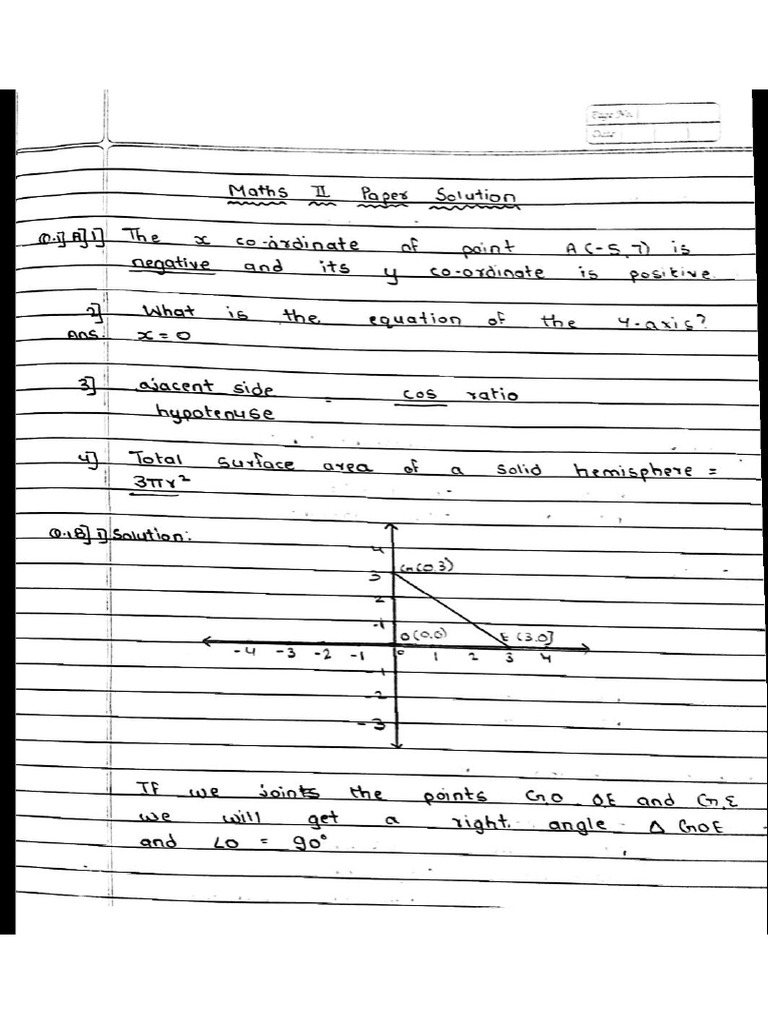 Page No.
Date
Maths II Paper Solution
Q.1] A] 1] The x co-ordinate of point A(-5,7) is
negative and its y co-ordinate is positive.
2] What is the equation of the Y-axis?
Ans. x = 0
3] ajacent side = cos ratio
hypotenuse
4] Total surface area of a solid hemisphere =
3πr²
Q.1B] 1] Solution:
4
G(0.3)
3
2
-1
O(0.0) E (3.0]
-4 -3 -2 -1 0 1 2 3 4
-1
-2
-3
If we joints the points GO OE and G,E
we will get a right angle Δ GOE
and ∠O = 90°